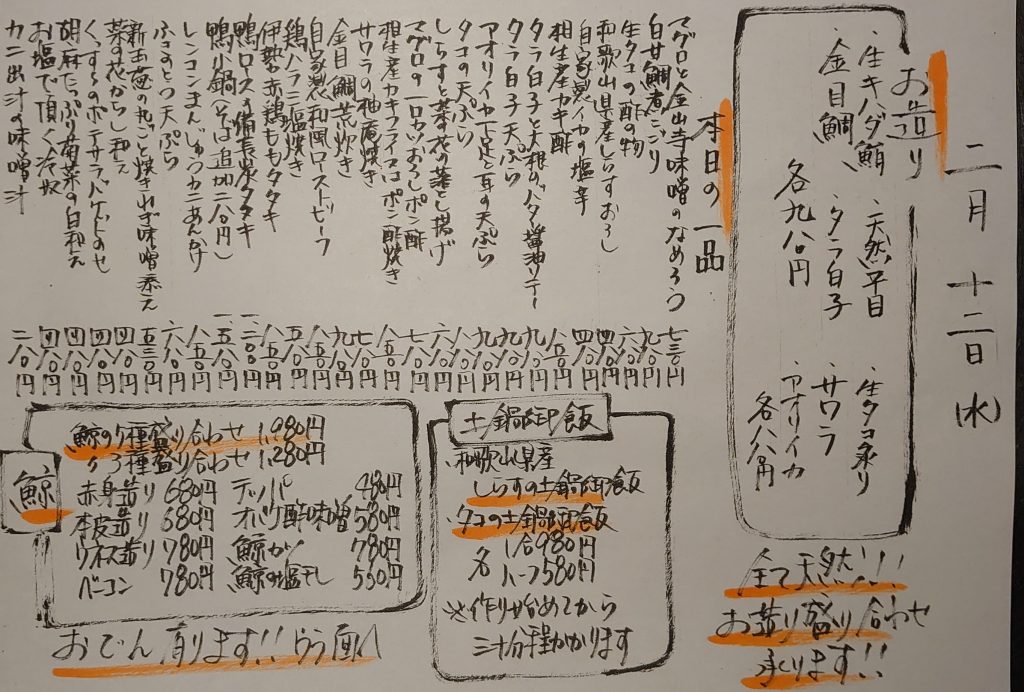 二月十二日(水)
お造り
・生キハダ鮪 ・天然平目 ・生タコ炙り
・金目鯛 ・タラ白子 ・サワラ
・アオリイカ
各九八〇円 各八八〇円
全て天然!!!
お造り盛り合わせ
承ります!!
本日の一品
マグロと金山寺味噌のなめろう 七三〇円
白甘鯛煮こごり 九八〇円
生タコの酢の物 六八〇円
和歌山県産しらすおろし 四八〇円
自家製イカの塩辛 四八〇円
相生産カキ酢 八五〇円
タラ白子と大根のバタ醤油ソテー 九八〇円
タラ白子天ぷら 九八〇円
アオリイカ下足と耳の天ぷら 九八〇円
タコの天ぷら 八八〇円
しらすと菜の花の落とし揚げ 六八〇円
マグロの一口カツおろしポン酢 七八〇円
相生産カキフライ又はポン酢焼き 八五〇円
サワラの柚庵焼き 七八〇円
金目鯛荒炊き 九八〇円
自家製和風ローストビーフ 八五〇円
鶏ハラミ塩焼き 五八〇円
伊勢赤鶏ももタタキ 八五〇円
鴨ロースの備長炭タタキ 一二〇〇円
鴨小鍋(そば追加二八〇円) 一五八〇円
レンコンまんじゅうカニあんかけ 八五〇円
ふきのとう天ぷら 六八〇円
新玉葱の丸ごと焼きねぎ味噌添え 五三〇円
菜の花からし和え 四八〇円
のポテサラバゲットのせ 四八〇円
胡麻たっぷり菊菜の白和え 四八〇円
お塩で頂く冷奴 四八〇円
カニ出汁の味噌汁 二八〇円
土鍋御飯
和歌山県産
しらすの土鍋御飯
タコの土鍋御飯
各 1合980円
ハーフ580円
※作り始めてから
三十分程かかります
鯨
鯨の7種盛り合わせ 1,980円
〃3種盛り合わせ 1,280円
赤身造り 680円 テッパ 480円
本皮造り 680円 オバケ酢味噌 580円
ウネス造り 780円 鯨カツ 780円
ベーコン 780円 鯨の塩干し 550円
おでん有ります!!ウラ面へ